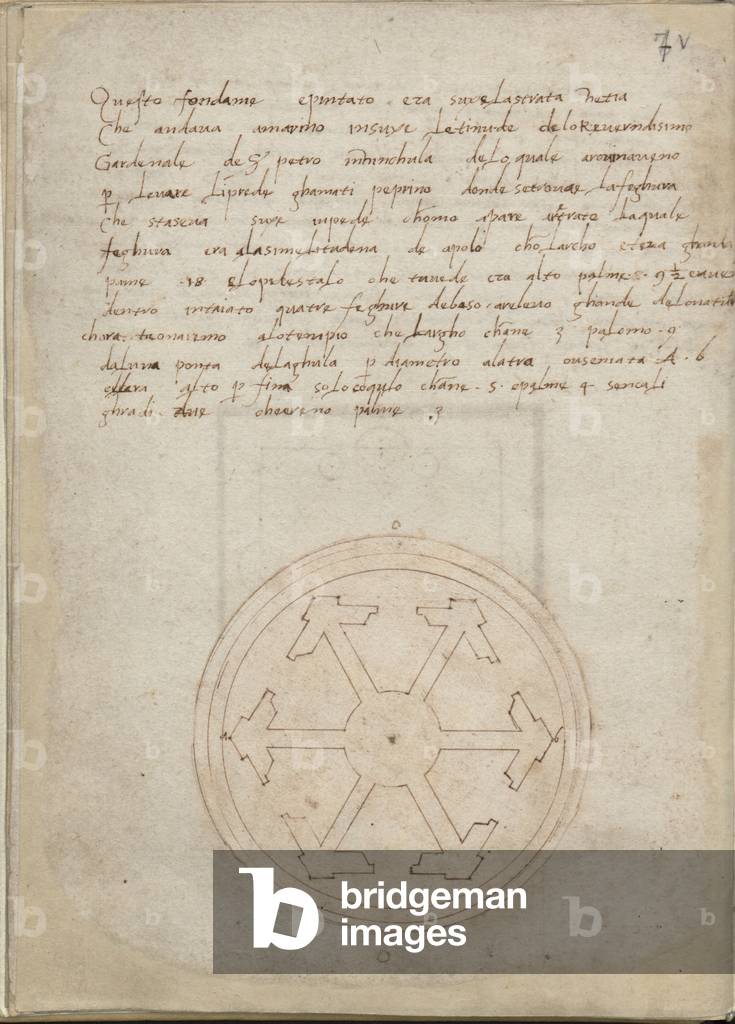 7 v
Questo fondame epintato era supelastrata
Che andaua amarino insupe letinude delo Reuerndisimo
Gardenale de Sº petro delo quale
p leuare liprede ghamati peprino donde setrouae lafeghura
Che staseua supe upede chomo apare laquale
feghura era alasimelitudena de apolo cho larcho etera ghande
palme 18 elopedestalo che tauede era alto palme 9 ½
dentro intaiato quatre feghure debaso areleuo ghande
alotempio che largho chane 3 palomo 9
daluna ponta delaghula p diametro alatra ousemata A 6
alto p fina solocoquulo chane 5 epalme 4 sencali
ghradi due cheereno palme 3
o
A
6
bridgeman
images